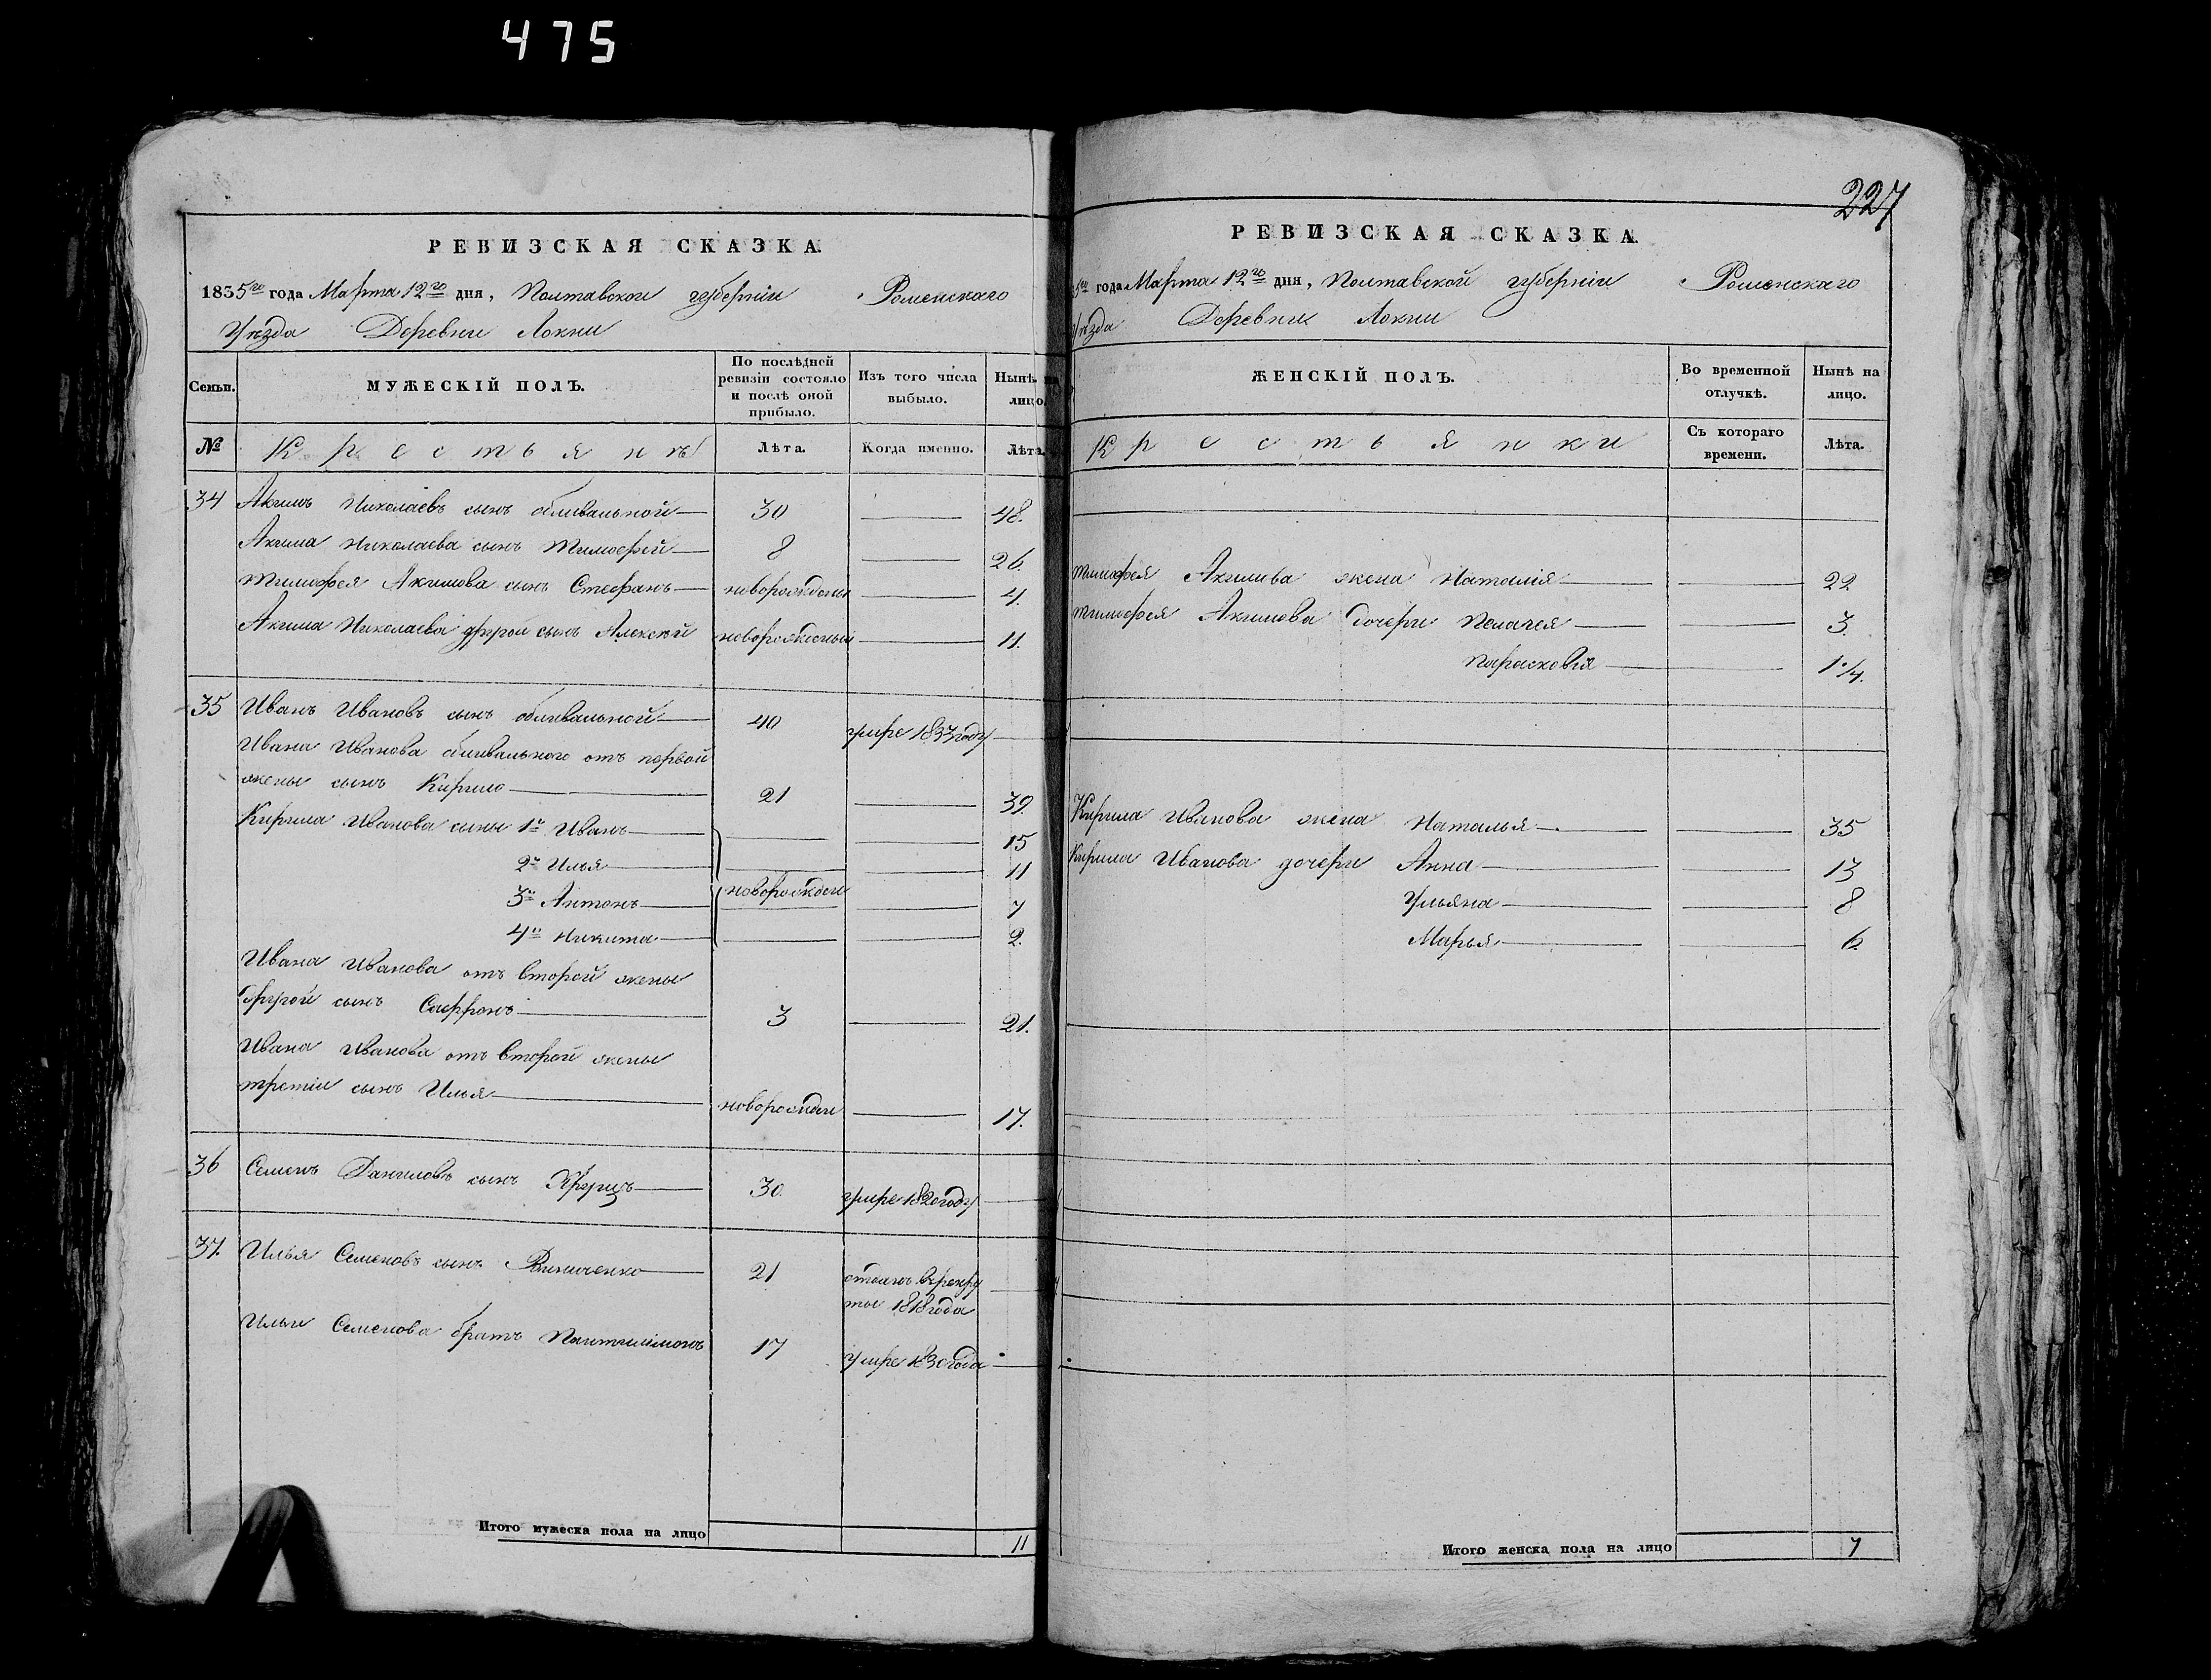 475
РЕВИЗСКАЯ СКАЗКА.
1835го года Марта 12го дня, Полтавской губерніи Роменскаго
Уѣзда Деревни Локни
Семьи. МУЖЕСКІЙ ПОЛЪ. По послѣдней ревизіи состояло и послѣ оной прибыло. Изъ того числа выбыло. Нынѣ на лицо.
№ Крестьянъ Лѣта. Когда именно. Лѣта.
34 Акимъ Николаевъ сынъ обливальной 30 48.
Акима Николаева сынъ Тимофей 8 26.
Тимофея Акимова сынъ Стефанъ новорожденный 4.
Акима Николаева другой сынъ Алексѣй новорожденный 11.
35 Иванъ Ивановъ сынъ обливальной 40 умре 1833 году
Ивана Иванова обливального отъ первой
жены сынъ Кирило 21 39.
Кирила Иванова сыны 1й Иванъ 15
2й Илья 11
новорожден
3й Антонъ 7
4й Никита 2.
Ивана Иванова отъ второй жены
другой сынъ Сафронъ 3 21.
Ивана Иванова отъ второй жены
третіи сынъ Илья новорожден 17.
36 Семенъ Даниловъ сынъ 30. умре 1820 году
37. Илья Семеновъ сынъ Винниченко 21 отданъ в рекру
ты 1818 года
Ильи Семенова братъ Пантилимонъ 17 умре 1830 года
Итого мужеска пола на лицо 11
227
РЕВИЗСКАЯ СКАЗКА.
5го года Марта 12го дня, Полтавской губерніи Роменскаго
Уѣзда Деревни Локни
ЖЕНСКІЙ ПОЛЪ. Во временной отлучкѣ. Нынѣ на лицо.
Крестьянки Съ котораго времени. Лѣта.
Тимофея Акимова жена Наталія 22
Тимофея Акимова дочери Пелагея 3.
Парасковія 1 1/4.
Кирила Иванова жена Наталья 35
Кирила Иванова дочери Анна 13
Ульяна 8
Марья 6
Итого женска пола на лицо 7